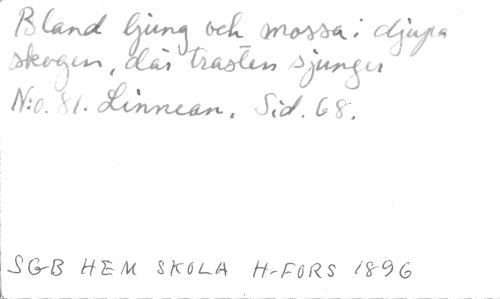 Bland ljung och mossa i djupa
skogen, där trasten sjunger
N:o. 81. Linnean. Sid. 68.
SGB HEM SKOLA H-FORS 1896